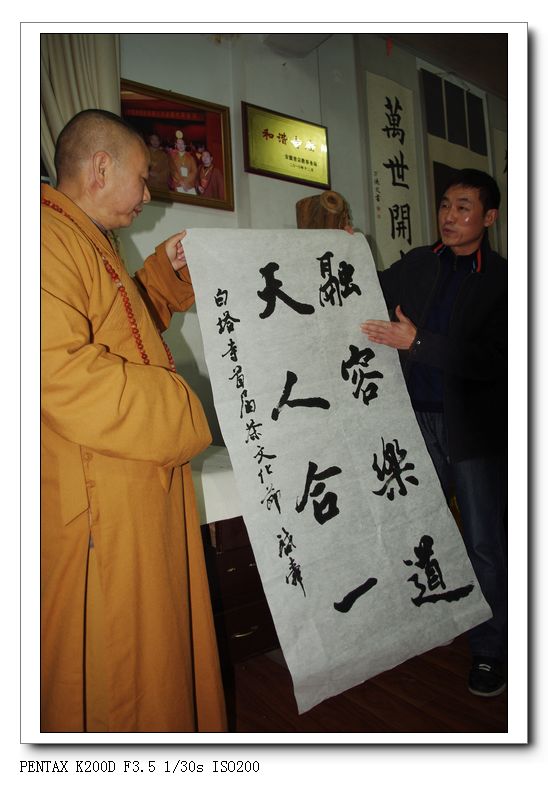 和谐
萬世開
融容樂道
天人合一
白塔寺首届茶文化節
PENTAX K200D F3.5 1/30s ISO200